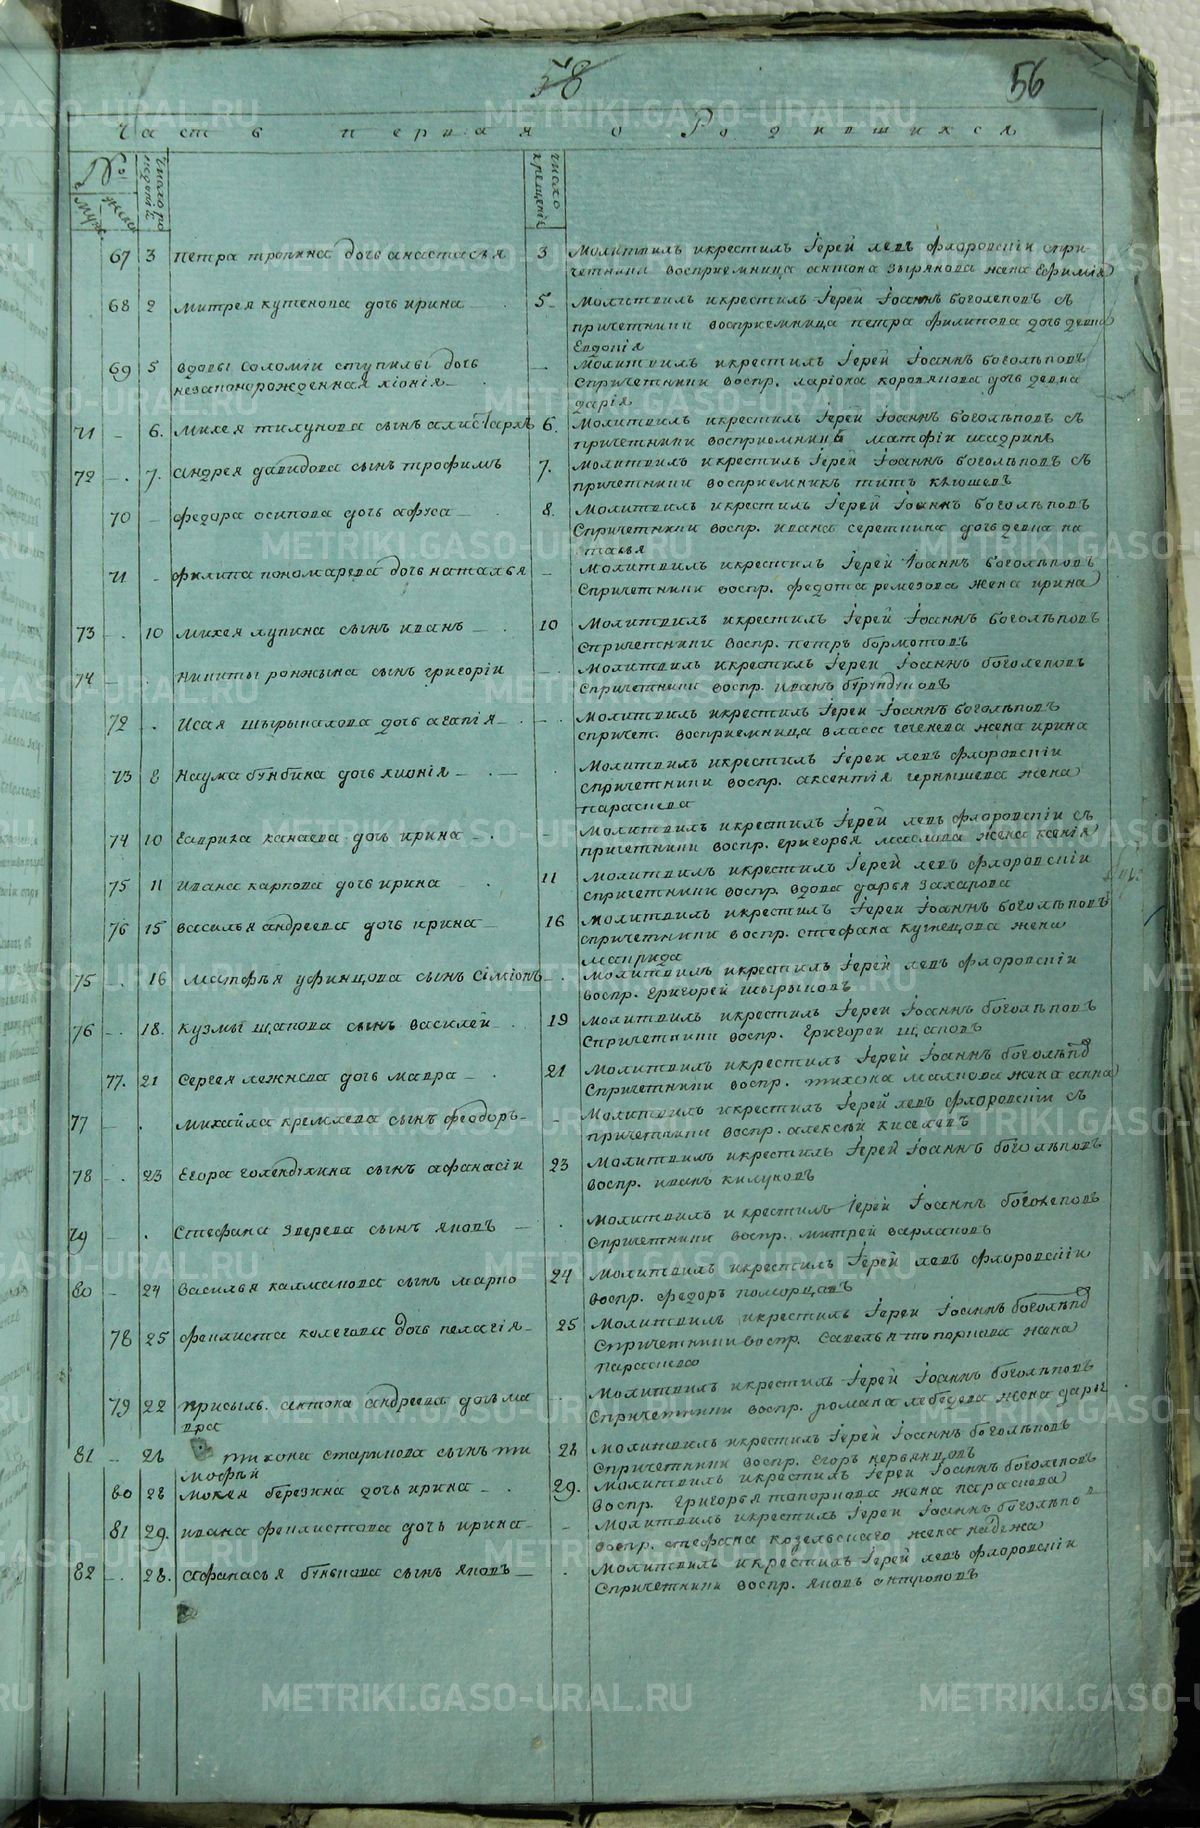 58
56
Часть первая о Родившихся
№
Муж.
женс.
число рождения
число крещенiя
67 3 Петра тропина дочь анастасья 3 Молитвилъ икрестилъ Iерей левъ флоровскiи спри-
четники восприемница антона зырянова жена Еѳимiя
68 2 Митрея кутенова дочь ирина 5 Молитвилъ икрестилъ Iерей Iоаннъ боголеповъ съ
причетники восприемница петра филипова дочь девка
Евдокiя
69 5 вдовы соломiи ступилвы дочь — Молитвилъ икрестилъ Iерей Iоаннъ боголѣповъ
незаконорожденная хiонiя спричетники воспр. ларiона коровякова дочь девка
дарiя
71 - 6. михея тилунова сынъ алистархъ 6. Молитвилъ икрестилъ Iерей Iоаннъ боголѣповъ съ
причетники восприемникъ матфiи шадринъ
72 - 7. андрея давидова сынъ трофимъ 7. Молитвилъ икрестилъ Iерей Iоаннъ боголѣповъ съ
причетники восприемникъ титъ клюшевъ
70 - федора осипова дочь афуса 8. Молитвилъ икрестилъ Iерей Iоаннъ боголѣповъ
спричетники воспр. ивана сереткина дочь девка на
сталья
71 - филипа пономарева дочь наталья — Молитвилъ икрестилъ Iерей Iоаннъ боголѣповъ
спричетники воспр. федота ремезова жена ирина
73 - 10 михея лупина сынъ иванъ 10 Молитвилъ икрестилъ Iерей Iоаннъ боголѣповъ
спричетники воспр. петръ бормотовъ
74 - никиты ронжина сынъ григорiи — Молитвилъ икрестилъ Iерей Iоаннъ боголеповъ
спричетники воспр. иванъ бурундуковъ
72 - Исая шырыкалова дочь агапiя — Молитвилъ икрестилъ Iерей Iоаннъ боголѣповъ
спричет. восприемница власа чеченева жена ирина
73 8 Наума бунбина дочь хионiя — Молитвилъ икрестилъ Iереи левъ флоровскiи
спричетники воспр. аксентiя чернышева жена
параскева
74 10 Гаврила канаева дочь ирина — Молитвилъ икрестилъ Iерей левъ флоровскiи съ
причетники воспр. григорья маслова жена ксенiя
75 11 ивана карпова дочь ирина 11 Молитвилъ икрестилъ Iерей левъ флоровскiи
спричетники воспр. вдова дарья захарова
76 15 василья андреева дочь ирина 16 Молитвилъ икрестилъ Iереи Iоаннъ боголѣповъ
спричетники воспр. стефана кузнецова жена
макрида
75 - 16 матфѣя уфинцова сынъ сiмiонъ . Молитвилъ икрестилъ Iерей левъ флоровскiи
воспр. григорей шырыковъ
76 - 18. кузмы щапова сынъ василей 19 Молитвилъ икрестилъ Iерей Iоаннъ боголѣповъ
спричетники воспр. григореи щаповъ
77. 21 Сергея лежнева дочь мавра 21 Молитвилъ икрестилъ Iерей Iоаннъ боголѣпв
спричетники воспр. тихона малкова жена анна
77 - . михайла кремлева сынъ феодоръ — Молитвилъ икрестилъ Iерей левъ флоровскiи съ
причетники воспр. алексѣй киселевъ
78 - 23 Егора голендухина сынъ афанасiи 23 Молитвилъ икрестилъ Iерей Iоаннъ боголѣповъ
воспр. иванъ килуновъ
79 - . Стефана зверева сынъ яковъ . Молитвилъ и крестилъ Iерей Iоаннъ боголеповъ
спричетники воспр. митрей варлаковъ
80 - 24 василья калмакова сынъ марко 24 Молитвилъ икрестилъ Iерей левъ флоровскiи
воспр. федоръ поморцовъ
78 25 феклиста колегова дочь пелагiя 25 Молитвилъ икрестилъ Iереи Iоаннъ боголѣпв
спричетники воспр. савелья топоркова жена
параскева
79 22 присыль. антона андреева дочь ма Молитвилъ икрестилъ Iерей Iоаннъ боголѣповъ
вра спричетники воспр. романа лебедева жена дарья
81 - 21 тихона старикова сынъ ти 28 Молитвилъ икрестилъ Iерей Iоаннъ боголѣповъ
мофѣй спричетники воспр. егоръ
80 28 мокея березина дочь ирина 29. Молитвилъ икрестилъ Iерей Iоаннъ боголеповъ
воспр. григорья топоркова жена параскева
81 29. ивана феклистова дочь ирина — Молитвилъ икрестилъ Iерей Iоаннъ боголѣпо
воспр. стефана козельскаго жена надежа
82 - 28. афанасья бункова сынъ яковъ . Молитвилъ икрестилъ Iерей левъ флоровскiи
спричетники воспр. яковъ антроповъ
METRIKI.GASO-URAL.RU